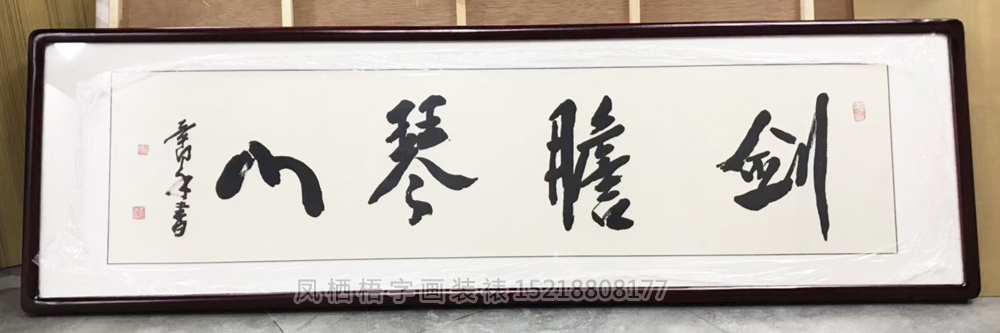 剑膽琴心
凤栖梧字画装裱15218808177